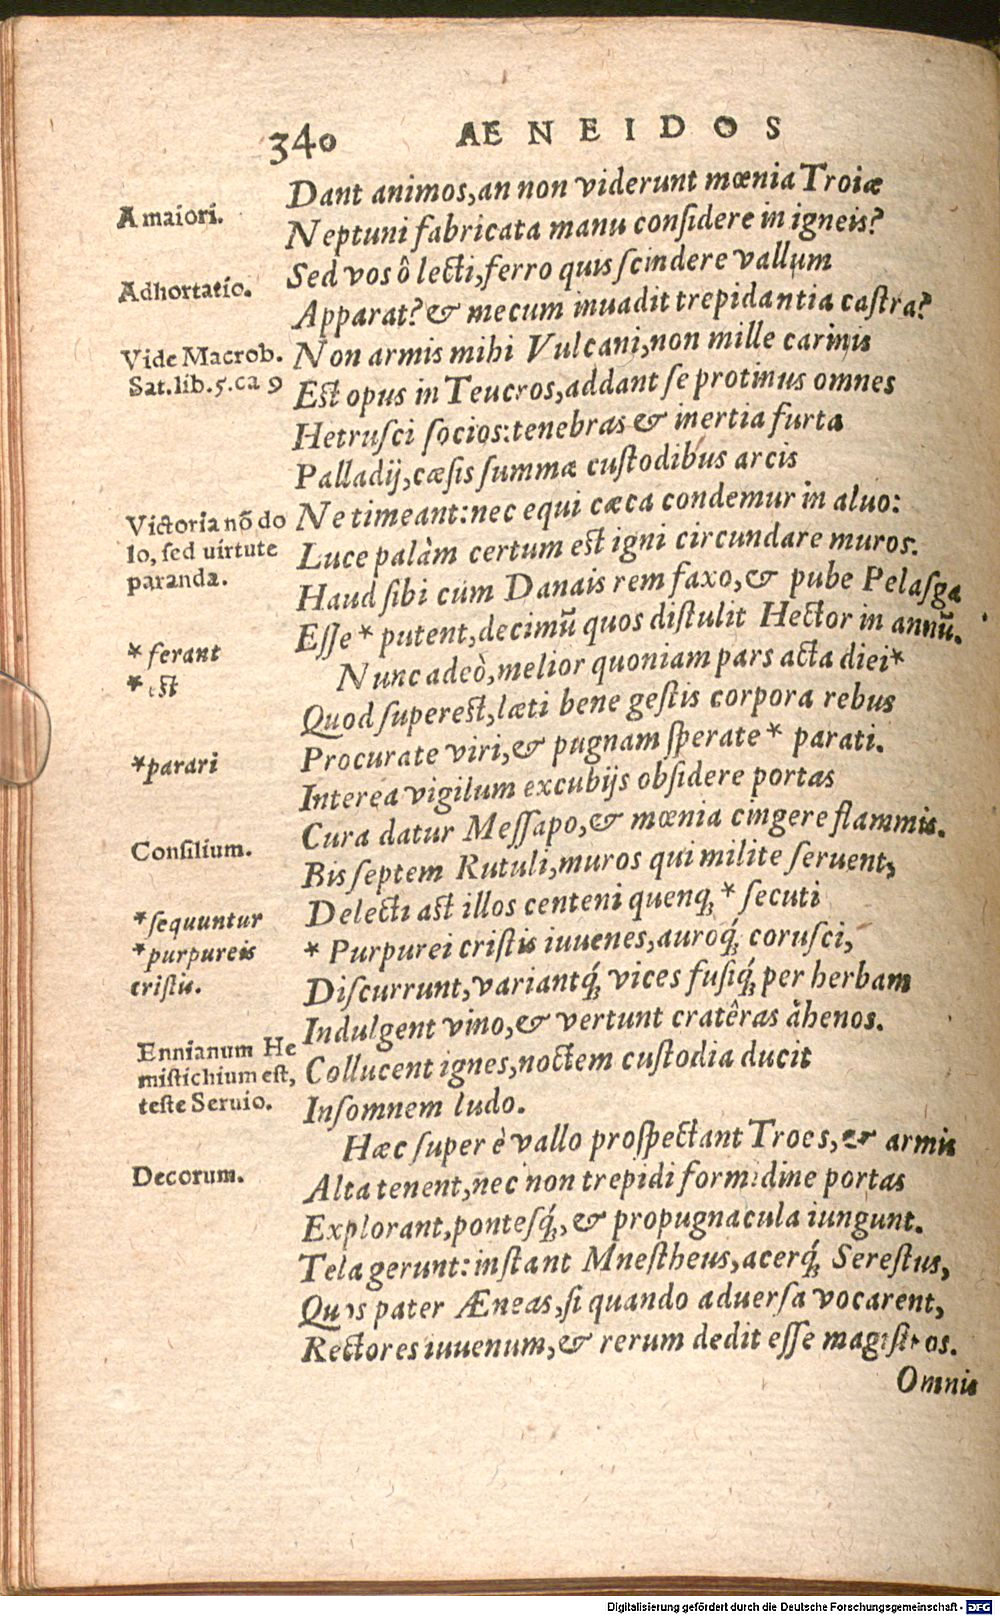 340 AENEIDOS
Dant animos, an non viderunt mœnia Troiæ
A maiori.
Neptuni fabricata manu conſidere in igneis?
Sed vos ô lecti, ferro quis ſcindere vallum
Adhortatio.
Apparat? & mecum inuadit trepidantia caſtra?
Vide Macrob.
Sat.lib.5.ca 9
Non armis mihi Vulcani, non mille carinis
Est opus in Teucros, addant ſe protinus omnes
Hetruſci ſocios: tenebras & inertia furta
Palladij, cæſis ſummæ cuſtodibus arcis
Victoria nõ do
lo, ſed uirtute
paranda.
Ne timeant: nec equi cæca condemur in aluo:
Luce palàm certum est igni circundare muros.
Haud ſibi cum Danais rem faxo, & pube Pelaſga
Eſſe * putent, decimũ quos diſtulit Hector in annũ.
* ferant
* est
Nunc adeò, melior quoniam pars acta diei *
Quod ſuperest, læti bene geſtis corpora rebus
Procurate viri, & pugnam ſperate * parati.
*parari
Interea vigilum excubijs obſidere portas
Cura datur Meſſapo, & mœnia cingere flammis.
Conſilium.
Bis ſeptem Rutuli, muros qui milite ſeruent,
Delecti ast illos centeni quenq́; * ſecuti
*ſequuntur
*purpureis
criſtis.
* Purpurei criſtis iuuenes, auroq́; coruſci,
Diſcurrunt, variantq́; vices fuſiq́; per herbam
Indulgent vino, & vertunt cratêras ähenos.
Ennianum He
miſtichium eſt,
teſte Seruio.
Collucent ignes, noctem cuſtodia ducit
Inſomnem ludo.
Hæc ſuper è vallo proſpectant Troes, & armis
Decorum.
Alta tenent, nec non trepidi formidine portas
Explorant, ponteſq́;, & propugnacula iungunt.
Tela gerunt: inſtant Mneſtheus, acerq́; Sereſtus,
Quos pater Æneas, ſi quando aduerſa vocarent,
Rectores iuuenum, & rerum dedit eſſe magiſtros.
Omnis
Digitalisierung gefördert durch die Deutsche Forschungsgemeinschaft - DFG